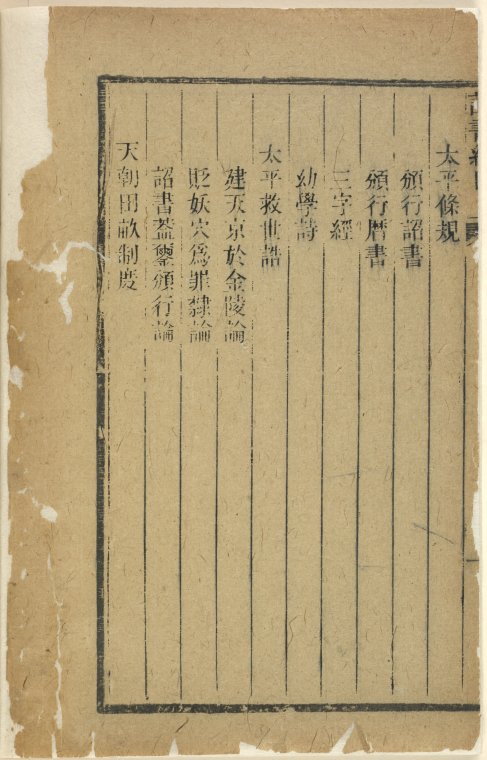 太平條規
頒行詔書
頒行曆書
三字經
幼學詩
太平救世誥
建天京於金陵論
貶妖穴爲罪隸論
詔書蓋璽頒行論
天朝田畝制度